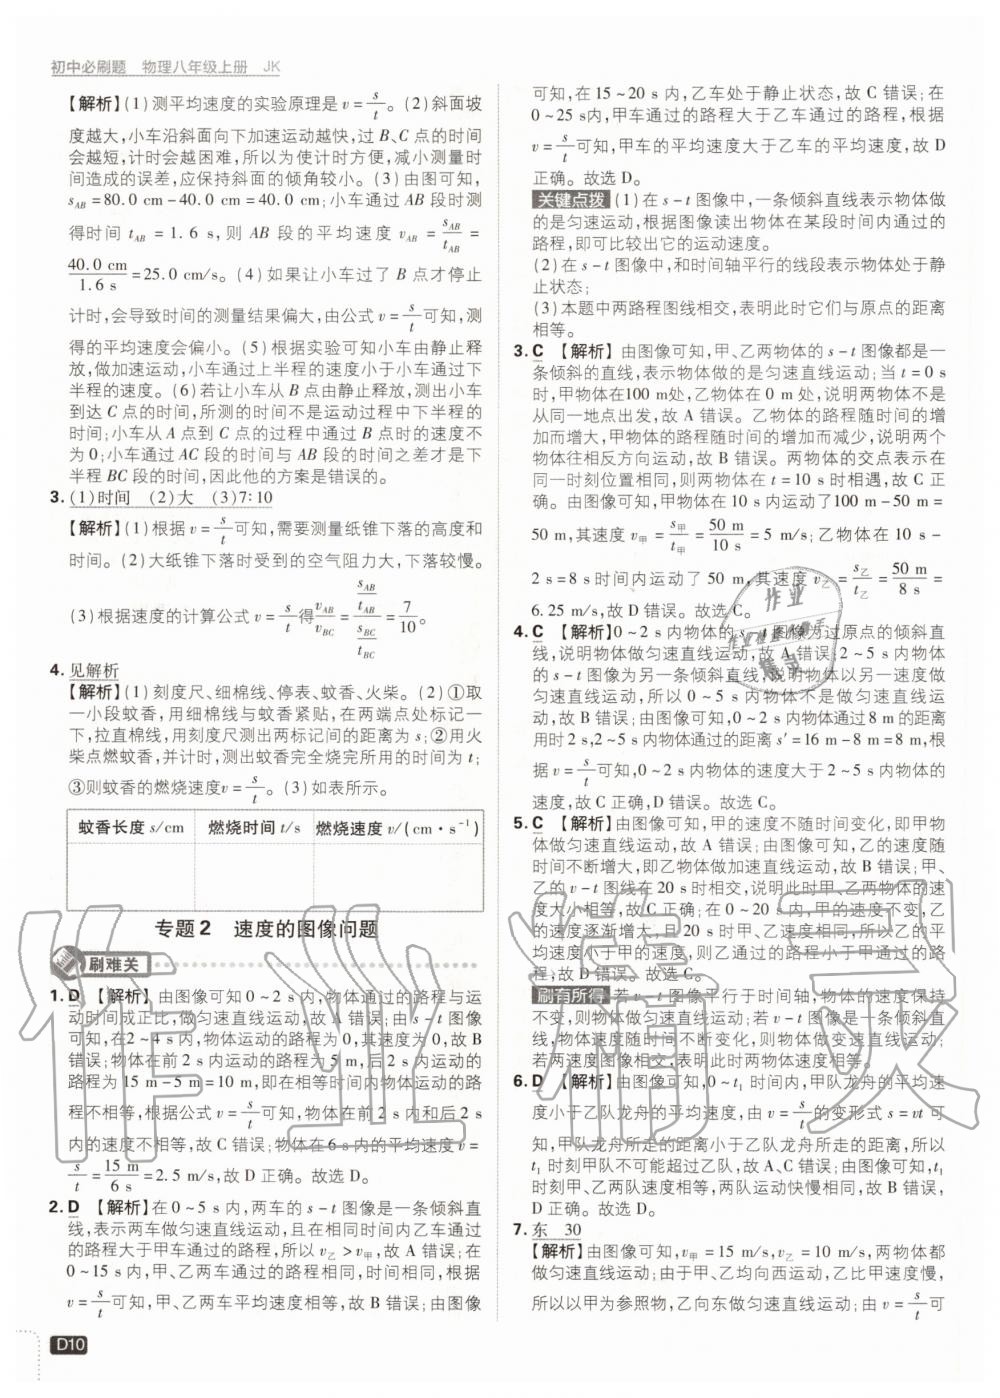 初中必刷题 物理八年级上册 JK
【解析】(1)测平均速度的实验原理是 v=s/t。(2)斜面坡
度越大,小车沿斜面向下加速运动越快,过 B、C 点的时间
会越短,计时会越困难,所以为使计时方便,减小测量时
间造成的误差,应保持斜面的倾角较小。(3)由图可知,
s_AB=80.0 cm-40.0 cm=40.0 cm;小车通过 AB 段时测
得时间 t_AB=1.6 s,则 AB 段的平均速度 v_AB=s_AB/t_AB=
40.0 cm/1.6 s=25.0 cm/s。(4)如果让小车过了 B 点才停止
计时,会导致时间的测量结果偏大,由公式 v=s/t可知,测
得的平均速度会偏小。(5)根据实验可知小车由静止释
放,做加速运动,小车通过上半程的速度小于小车通过下
半程的速度。(6)若让小车从 B 点由静止释放,测出小车
到达 C 点的时间,所测的时间不是运动过程中下半程的
时间;小车从 A 点到 C 点的过程中,经过 B 点时的速度不
为 0;小车通过 AC 段的时间与 AB 段的时间之差才是下
半程 BC 段的时间,因此他的方案是错误的。
3. (1)时间 (2)大 (3)7:10
【解析】(1)根据 v=s/t可知,需要测量纸锥下落的高度和
时间。(2)大纸锥下落时受到的空气阻力大,下落较慢。
(3)根据速度的计算公式 v=s/t得v_AB/v_BC=(s_AB/t_AB)/(s_BC/t_BC)=7/10。
4. 见解析
【解析】(1)刻度尺、细棉线、停表、蚊香、火柴。(2)①取
一小段蚊香,用细棉线与蚊香紧贴,在两端点处标记一
下,拉直棉线,用刻度尺测出两标记间的距离为 s;②用火
柴点燃蚊香,并计时,测出蚊香完全烧完所用的时间为 t;
③则蚊香的燃烧速度v=s/t。(3)如表所示。
蚊香长度 s/cm 燃烧时间 t/s 燃烧速度 v/(cm·s⁻¹)
专题2 速度的图像问题
刷难关
1. D 【解析】由图像可知 0~2 s 内,物体通过的路程与运
动时间成正比,做匀速直线运动,故 A 错误;由 s-t 图像
可知,在2~4 s内,物体运动的路程为0,其速度为0,故B
错误;物体在前 2 s 内运动的路程为 5 m,后 2 s 内运动的
路程为 15 m-5 m=10 m,即在相等时间内物体运动的路
程不相等,根据公式 v=s/t可知,物体在前 2 s 内和后 2 s
内的速度不相等,故 C 错误;物体在 6 s 内的平均速度 v=
s/t=15 m/6 s=2.5 m/s,故 D 正确。故选 D。
2. D 【解析】在 0~5 s 内,两车的 s-t 图像是一条倾斜直
线,表示两车做匀速直线运动,且在相同时间内乙车通过
的路程大于甲车通过的路程,所以 v乙>v甲,故 A 错误;在
0~15 s 内,甲、乙两车通过的路程相同,时间相同,根据
v=s/t可知,甲、乙两车平均速度相等,故 B 错误;由图像
可知,在 15~20 s 内,乙车处于静止状态,故 C 错误;在
0~25 s内,甲车通过的路程大于乙车通过的路程,根据
v=s/t可知,甲车的平均速度大于乙车的平均速度,故 D
正确。故选 D。
关键点拨 (1)在 s-t 图像中,一条倾斜直线表示物体做
的是匀速运动,根据图像读出物体在某段时间内通过的
路程,即可比较出它的运动速度。
(2)在 s-t 图像中,和时间轴平行的线段表示物体处于静
止状态;
(3)本题中两路程图线相交,表明此时它们与原点的距离
相等。
3. C 【解析】由图像可知,甲、乙两物体的 s-t 图像都是一
条倾斜的直线,表示物体做的是匀速直线运动;当 t=0 s
时,甲物体在100 m处,乙物体在 0 m 处,说明两物体不是
从同一地点出发,故 A 错误。乙物体的路程随时间的增
加而增大,甲物体的路程随时间的增加而减少,说明两个
物体往相反方向运动,故 B 错误。两物体的交点表示在
同一时刻位置相同,则两物体在 t=10 s 时相遇,故 C 正
确。由图像可知,甲物体在 10 s 内运动了100 m-50 m=
50 m,其速度 v甲=s甲/t甲=50 m/10 s=5 m/s;乙物体在 10 s-
2 s=8 s 时间内运动了 50 m,其速度 v乙=s乙/t乙=50 m/8 s=
6.25 m/s,故 D 错误。故选 C。
4. C 【解析】0~2 s 内物体的 s-t 图像为过原点的倾斜直
线,说明物体做匀速直线运动,故 A 错误;2~5 s 内物体
的 s-t 图像为另一条倾斜直线,说明物体以另一速度做
匀速直线运动,所以 0~5 s 内物体不是做匀速直线运
动,故 B 错误;由图像可知,0~2 s 内物体通过 8 m 的距离
用时2 s,2~5 s 内物体通过的距离 s′=16 m-8 m=8 m,根
据 v=s/t可知,0~2 s 内物体的速度大于 2~5 s 内物体的
速度,故 C 正确,D 错误。故选 C。
5. C 【解析】由图像可知,甲的速度不随时间变化,即甲物
体做匀速直线运动,故 A 错误;由图像可知,乙的速度随
时间不断增大,即乙物体做加速直线运动,故 B 错误;甲、
乙的 v-t 图线在 20 s 时交于一点,说明此时甲、乙的速
度大小相等,故 C 正确;在 0~20 s 内,甲的速度不变,乙
的速度逐渐增大,且 20 s 时甲、乙速度相同,所以乙的平
均速度小于甲的速度,则乙通过的路程小于甲通过的路
程,故 D 错误。故选 C。
刷有所得 若 v-t 图像平行于时间轴,物体的速度保持
不变,则物体做匀速直线运动;若 v-t 图像是一条倾斜直
线,物体速度随时间不断变化,则物体做变速直线运动;
若两速度图像相交,表明此时两物体速度相等。
6. D 【解析】由图像可知,0~t₁ 时间内,甲队龙舟的平均速
度小于乙队龙舟的平均速度,由 v=s/t的变形式 s=vt 可
知,甲队龙舟所走的距离小于乙队龙舟所走的距离,所以
t₁ 时刻甲队不可能超过乙队,故 A、C 错误;由图像可知,t₁
时刻甲、乙两队速度相等,两队运动快慢相同,故 B 错误,
D 正确。故选 D。
7. 东 30
【解析】由图像可知,v甲=15 m/s,v乙=10 m/s,两物体都
做匀速直线运动;由于甲、乙均向西运动,乙比甲速度慢,
所以以甲为参照物,乙向东做匀速直线运动;由 v=s/t可
D10
作业精灵